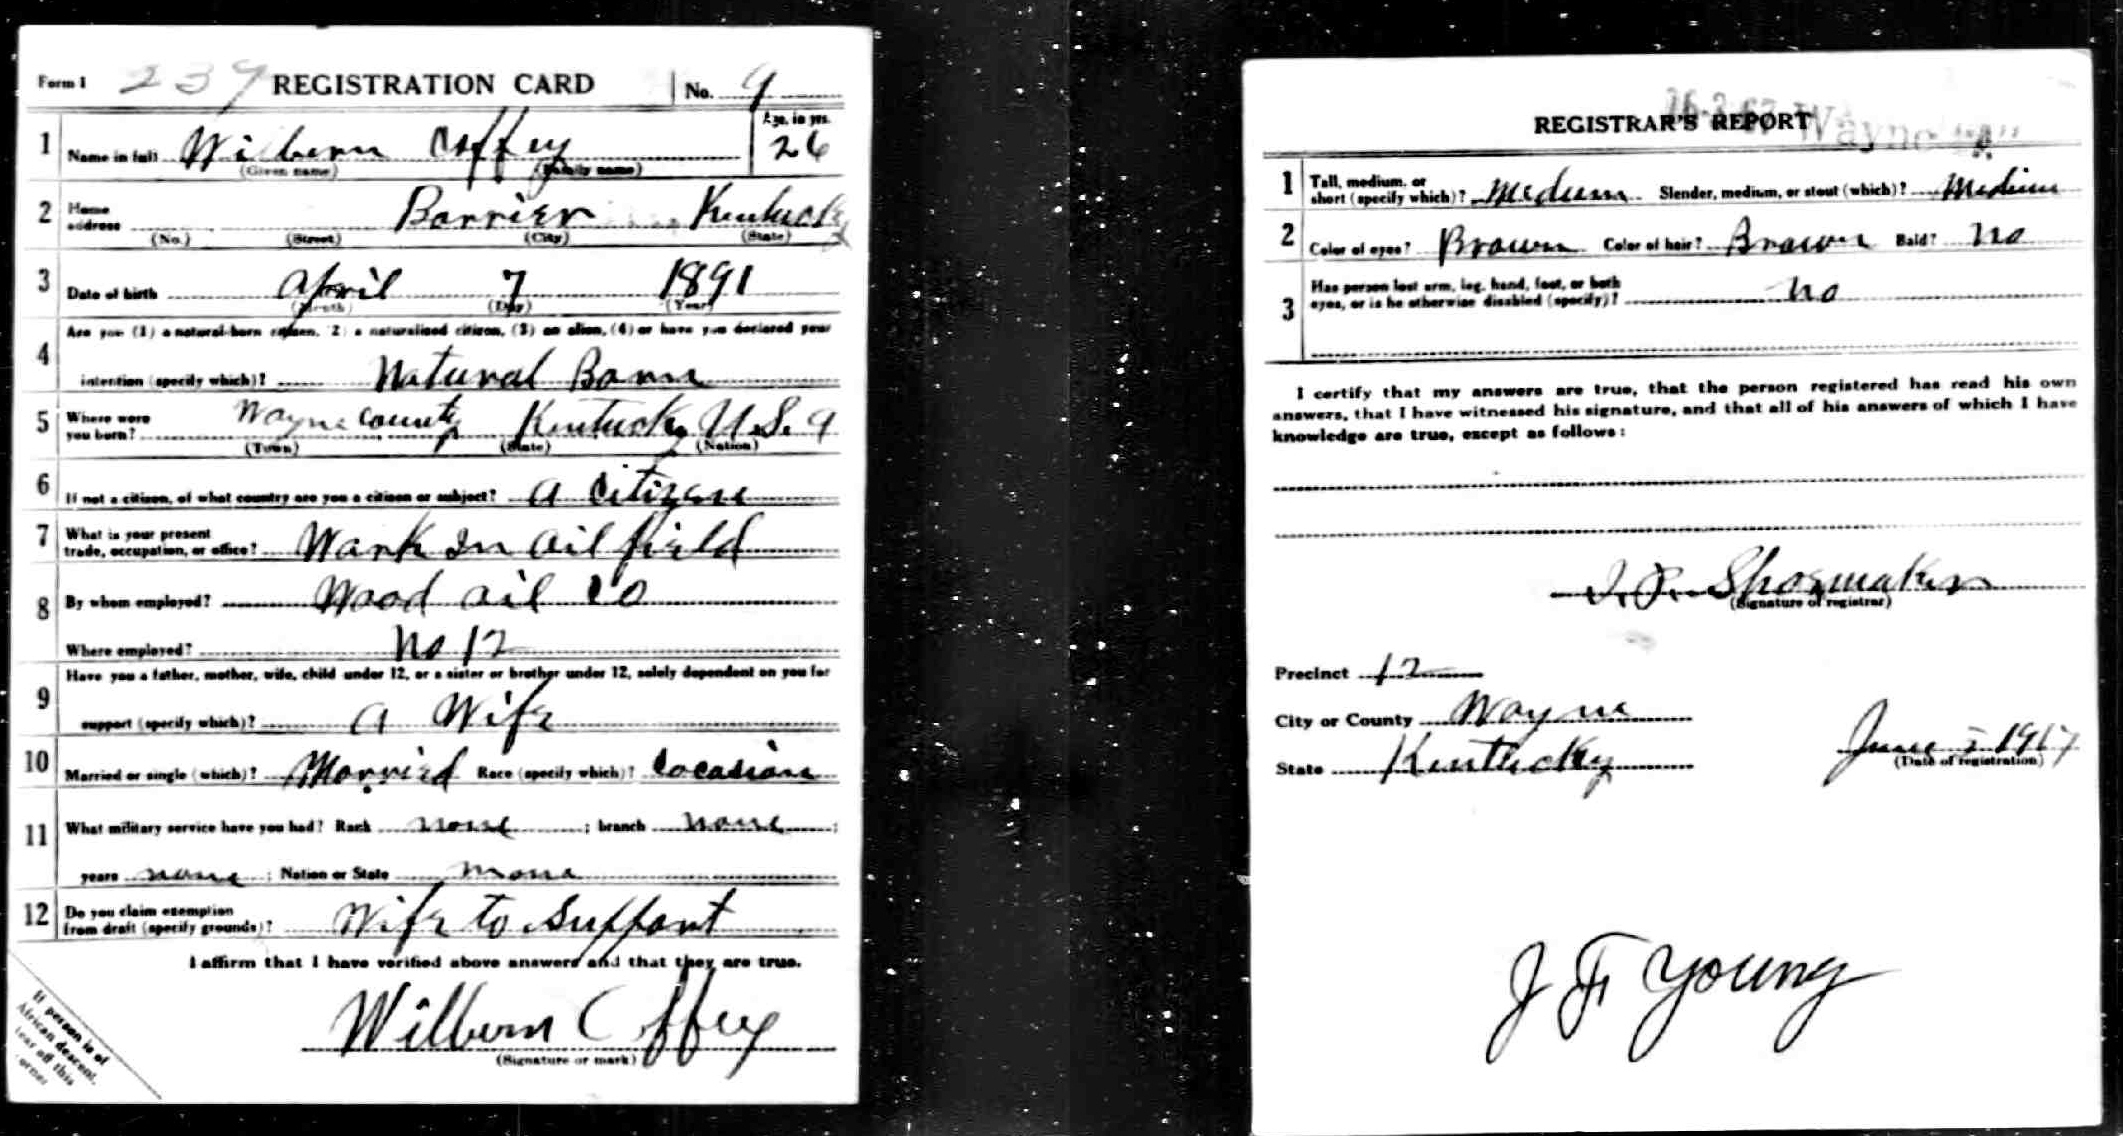 Form 1 237 REGISTRATION CARD No. 9
1 Name in full Wilburn Coffey Age, in yrs. 26
(Given name) (Family name)
2 Home address Barrier Kentucky
(No.) (Street) (City) (State)
3 Date of birth April 7 1891
(Month) (Day) (Year)
4 Are you (1) a natural-born citizen, (2) a naturalized citizen, (3) an alien, (4) or have you declared your
intention (specify which)? Natural Born
5 Where were you born? Wayne County Kentucky U.S.A
(Town) (State) (Nation)
6 If not a citizen, of what country are you a citizen or subject? A Citizen
7 What is your present trade, occupation, or office? Work In oil field
8 By whom employed? Wood oil Co
Where employed? No 12
9 Have you a father, mother, wife, child under 12, or a sister or brother under 12, solely dependent on you for
support (specify which)? A Wife
10 Married or single (which)? Married Race (specify which)? Cocasion
11 What military service have you had? Rank none ; branch none ;
years none ; Nation or State none
12 Do you claim exemption from draft (specify grounds)? Wife to Support
I affirm that I have verified above answers and that they are true.
Wilburn Coffey
(Signature or mark)
If person is of
African descent,
tear off this
corner
Wayne "A"
REGISTRAR'S REPORT
1 Tall, medium, or short (specify which)? Medium Slender, medium, or stout (which)? Medium
2 Color of eyes? Brown Color of hair? Brown Bald? No
3 Has person lost arm, leg, hand, foot, or both eyes, or is he otherwise disabled (specify)? No
I certify that my answers are true, that the person registered has read his own
answers, that I have witnessed his signature, and that all of his answers of which I have
knowledge are true, except as follows:
Shoemaker
(Signature of registrar)
Precinct 12
City or County Wayne
State Kentucky
June 5 1917
(Date of registration)
J F Young